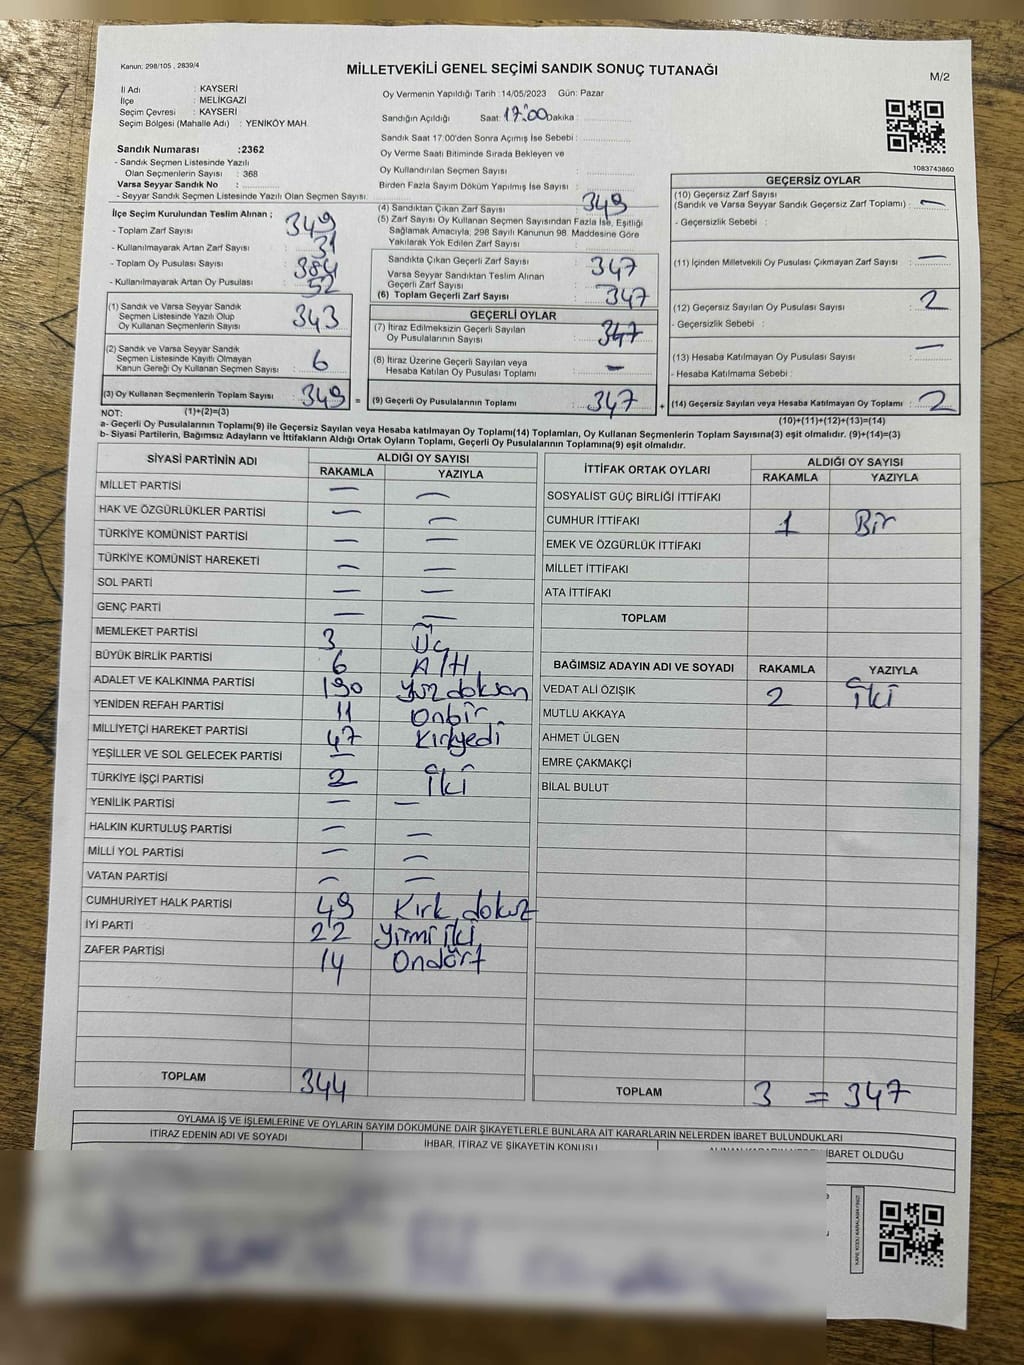 Kanun: 298/105 , 2839/4
MİLLETVEKİLİ GENEL SEÇİMİ SANDIK SONUÇ TUTANAĞI
M/2
İl Adı : KAYSERİ
İlçe : MELİKGAZİ
Seçim Çevresi : KAYSERİ
Seçim Bölgesi (Mahalle Adı) : YENİKÖY MAH.
Oy Vermenin Yapıldığı Tarih : 14/05/2023 Gün: Pazar
Sandığın Açıldığı Saat: 17:00 Dakika :
Sandık Saat 17:00'den Sonra Açılmış İse Sebebi :
Oy Verme Saati Bitiminde Sırada Bekleyen ve
Oy Kullandırılan Seçmen Sayısı :
Birden Fazla Sayım Döküm Yapılmış İse Sayısı :
1083743860
Sandık Numarası :2362
- Sandık Seçmen Listesinde Yazılı
Olan Seçmenlerin Sayısı : 368
Varsa Seyyar Sandık No :
- Seyyar Sandık Seçmen Listesinde Yazılı Olan Seçmen Sayısı:
İlçe Seçim Kurulundan Teslim Alınan ;
- Toplam Zarf Sayısı : 349
- Kullanılmayarak Artan Zarf Sayısı : 31
- Toplam Oy Pusulası Sayısı : 384
- Kullanılmayarak Artan Oy Pusulası : 52
(1) Sandık ve Varsa Seyyar Sandık
Seçmen Listesinde Yazılı Olup
Oy Kullanan Seçmenlerin Sayısı : 343
(2) Sandık ve Varsa Seyyar Sandık
Seçmen Listesinde Kayıtlı Olmayan
Kanun Gereği Oy Kullanan Seçmen Sayısı : 6
(3) Oy Kullanan Seçmenlerin Toplam Sayısı : 349 =
(4) Sandıktan Çıkan Zarf Sayısı : 349
(5) Zarf Sayısı Oy Kullanan Seçmen Sayısından Fazla İse, Eşitliği
Sağlamak Amacıyla; 298 Sayılı Kanunun 98. Maddesine Göre
Yakılarak Yok Edilen Zarf Sayısı :
Sandıkta Çıkan Geçerli Zarf Sayısı : 347
Varsa Seyyar Sandıktan Teslim Alınan
Geçerli Zarf Sayısı :
(6) Toplam Geçerli Zarf Sayısı : 347
GEÇERLİ OYLAR
(7) İtiraz Edilmeksizin Geçerli Sayılan
Oy Pusulalarının Sayısı : 347
(8) İtiraz Üzerine Geçerli Sayılan veya
Hesaba Katılan Oy Pusulası Toplamı : -
(9) Geçerli Oy Pusulalarının Toplamı : 347 +
GEÇERSİZ OYLAR
(10) Geçersiz Zarf Sayısı
(Sandık ve Varsa Seyyar Sandık Geçersiz Zarf Toplamı) : -
- Geçersizlik Sebebi :
(11) İçinden Milletvekili Oy Pusulası Çıkmayan Zarf Sayısı : -
(12) Geçersiz Sayılan Oy Pusulası Sayısı : 2
- Geçersizlik Sebebi :
(13) Hesaba Katılmayan Oy Pusulası Sayısı : -
- Hesaba Katılmama Sebebi :
(14) Geçersiz Sayılan veya Hesaba Katılmayan Oy Toplamı : 2
NOT: (1)+(2)=(3)
(10)+(11)+(12)+(13)=(14)
a- Geçerli Oy Pusulalarının Toplamı(9) ile Geçersiz Sayılan veya Hesaba katılmayan Oy Toplamı(14) Toplamları, Oy Kullanan Seçmenlerin Toplam Sayısına(3) eşit olmalıdır. (9)+(14)=(3)
b- Siyasi Partilerin, Bağımsız Adayların ve İttifakların Aldığı Ortak Oyların Toplamı, Geçerli Oy Pusulalarının Toplamına(9) eşit olmalıdır.
SİYASİ PARTİNİN ADI ALDIĞI OY SAYISI
RAKAMLA YAZIYLA
MİLLET PARTİSİ - -
HAK VE ÖZGÜRLÜKLER PARTİSİ - -
TÜRKİYE KOMÜNİST PARTİSİ - -
TÜRKİYE KOMÜNİST HAREKETİ - -
SOL PARTİ - -
GENÇ PARTİ - -
MEMLEKET PARTİSİ 3 Üç
BÜYÜK BİRLİK PARTİSİ 6 Altı
ADALET VE KALKINMA PARTİSİ 190 Yüz doksan
YENİDEN REFAH PARTİSİ 11 Onbir
MİLLİYETÇİ HAREKET PARTİSİ 47 Kırkyedi
YEŞİLLER VE SOL GELECEK PARTİSİ -
TÜRKİYE İŞÇİ PARTİSİ 2 İki
YENİLİK PARTİSİ - -
HALKIN KURTULUŞ PARTİSİ - -
MİLLİ YOL PARTİSİ - -
VATAN PARTİSİ - -
CUMHURİYET HALK PARTİSİ 49 Kırk dokuz
İYİ PARTİ 22 Yirmi iki
ZAFER PARTİSİ 14 Ondört
TOPLAM 344
İTTİFAK ORTAK OYLARI ALDIĞI OY SAYISI
RAKAMLA YAZIYLA
SOSYALİST GÜÇ BİRLİĞİ İTTİFAKI
CUMHUR İTTİFAKI 1 Bir
EMEK VE ÖZGÜRLÜK İTTİFAKI
MİLLET İTTİFAKI
ATA İTTİFAKI
TOPLAM
BAĞIMSIZ ADAYIN ADI VE SOYADI RAKAMLA YAZIYLA
VEDAT ALİ ÖZIŞIK 2 İki
MUTLU AKKAYA
AHMET ÜLGEN
EMRE ÇAKMAKÇİ
BİLAL BULUT
TOPLAM 3 = 347
OYLAMA İŞ VE İŞLEMLERİNE VE OYLARIN SAYIM DÖKÜMÜNE DAİR ŞİKAYETLERLE BUNLARA AİT KARARLARIN NELERDEN İBARET BULUNDUKLARI
İTİRAZ EDENİN ADI VE SOYADI
İHBAR, İTİRAZ VE ŞİKAYETİN KONUSU
İBARET OLDUĞU